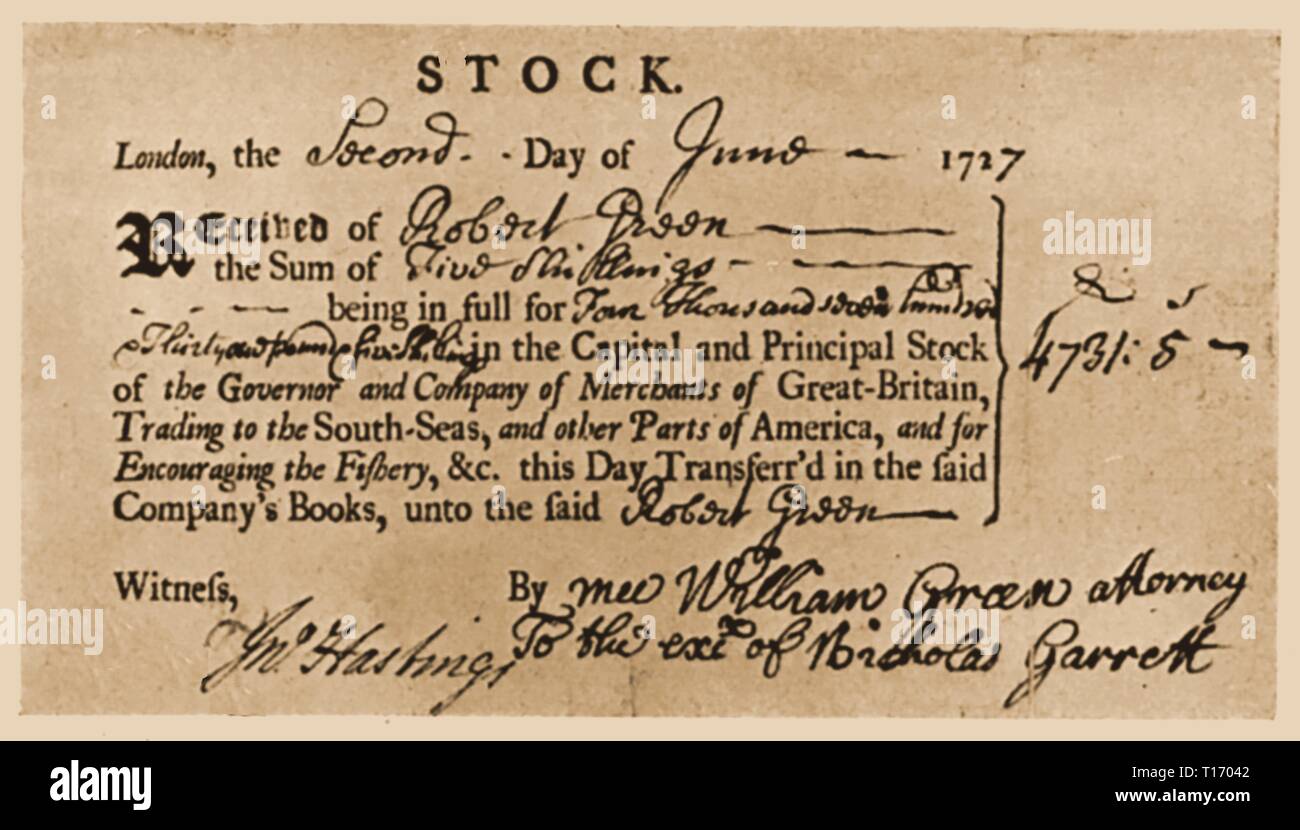 STOCK.
London, the Second. - Day of June — 1727
REceived of Robert Green
the Sum of Five Shillings
being in full for Four thousand seven hundred & s
Thirty one pound five Shillings in the Capital and Principal Stock 4731: 5 —
of the Governor and Company of Merchants of Great-Britain,
Trading to the South-Seas, and other Parts of America, and for
Encouraging the Fiſhery, &c. this Day Transferr'd in the ſaid
Company's Books, unto the ſaid Robert Green
Witneſs, By mee William Green attorney
Jno. Hastings To the exr. of Nicholas Garrett
alamy
Image ID: T17042
www.alamy.com